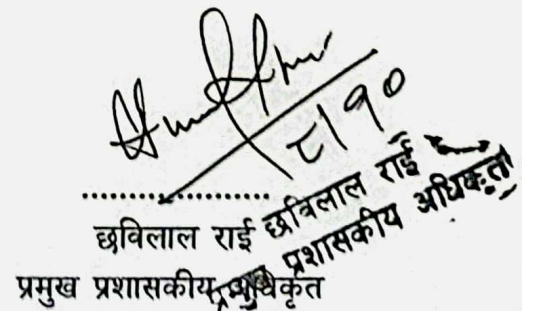 ८/१०
..............................
छविलाल राई
प्रमुख प्रशासकीय अधिकृत
छविलाल राई
प्रमुख प्रशासकीय अधिकृत